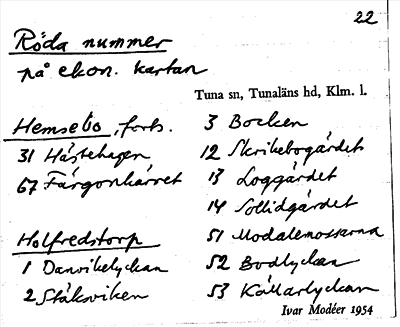 22
Röda nummer
på ekon. kartan
Tuna sn, Tunaläns hd, Klm. l.
Hemsebo, forts.
31 Hästehagen
67 Färgonkärret
Holfredstorp
1 Danvikelyckan
2 Stäksviken
3 Backen
12 Skrikebogärdet
13 Loggärdet
14 Sollidgärdet
51 Modalemossarna
52 Bodlyckan
53 Källarlyckan
Ivar Modéer 1954